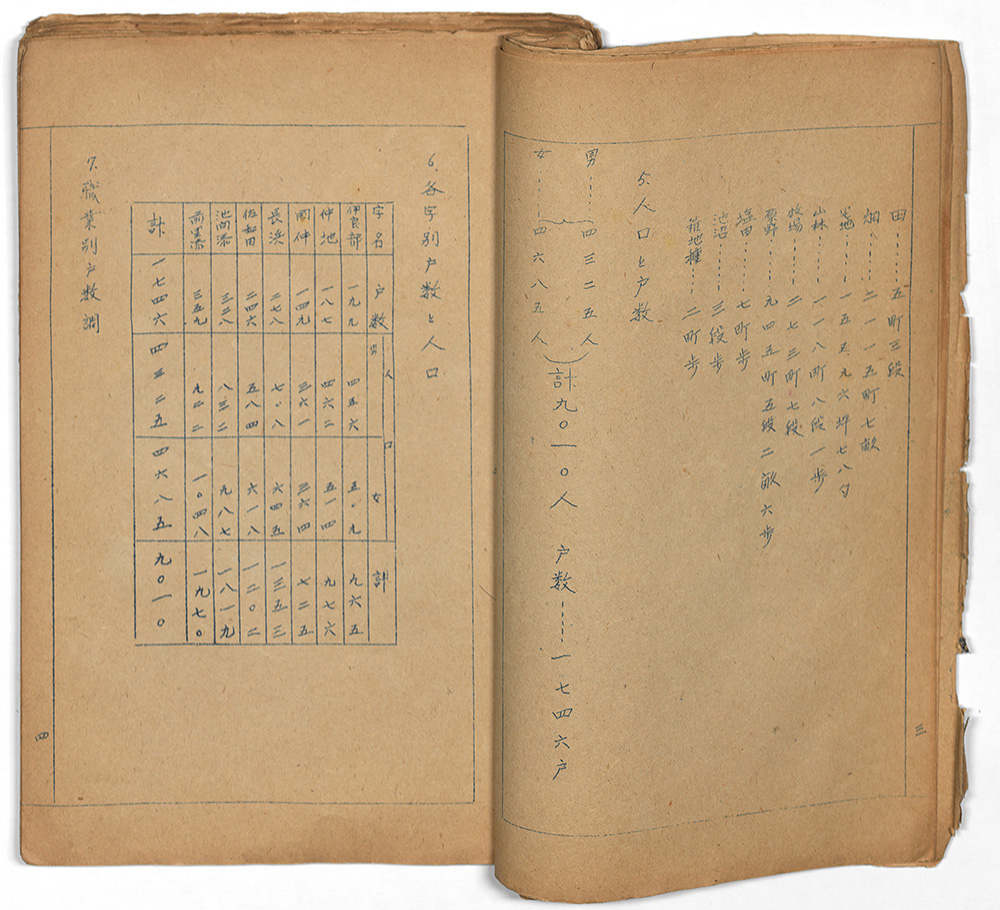 田……五町三段
畑……二一一五町七畝
宅地……一五五九六坪七八勺
山林……一一八町八段一歩
牧場……二七三町七段
原野……九四五町五段二畝六歩
塩田……七町歩
池沼……三段歩
雑地種……二町歩
5.人口と戸数
男……四三二五人
女……四六八五人
計九〇一〇人 戸数……一七四六戸
三
6.各字別戸数と人口
字名 戸数 人口 男 女 計
伊良部 一九九 四五六 五〇九 九六五
仲地 一八七 四六二 五一四 九七六
国仲 一四九 三六一 三六四 七二五
長浜 二七八 七〇八 六四五 一三五三
佐和田 二四六 五八四 六一八 一二〇二
池間添 三二八 八三二 九八七 一八一九
前里添 三五九 九二二 一〇四八 一九七〇
計 一七四六 四三二五 四六八五 九〇一〇
7.職業別戸数調
四